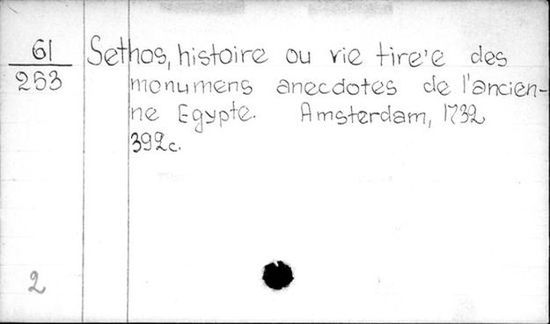 61
253
Sethos, histoire ou vie tire'e des
monumens anecdotes de l'ancien-
ne Egypte. Amsterdam, 1732
392c.
2